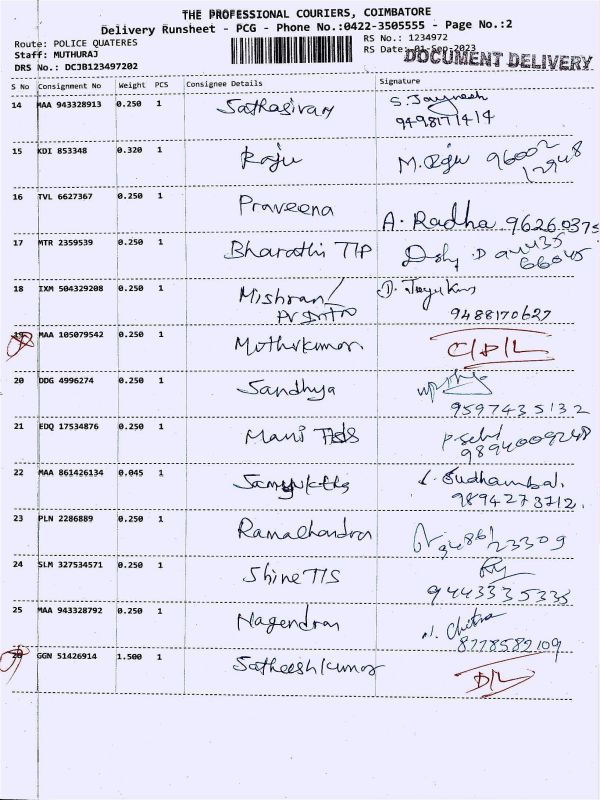 THE PROFESSIONAL COURIERS, COIMBATORE
Delivery Runsheet - PCG - Phone No.:0422-3505555 - Page No.:2
Route: POLICE QUATERES
RS No.: 1234972
Staff: MUTHURAJ
RS Date: 01-Sep-2023
DOCUMENT DELIVERY
DRS No.: DCJB123497202
S No Consignment No Weight PCS Consignee Details Signature
14 MAA 943328913 0.250 1 Sathasivam S. Jayesh
9498171414
15 KDI 853348 0.320 1 Raju M. Raju 96002
12948
16 TVL 6627367 0.250 1 Praveena A. Radha 9626 0375
17 MTR 2359539 0.250 1 Bharathi T/P
66045
18 IXM 504329208 0.250 1 Mishran/
9488170627
19 MAA 105079542 0.250 1 Muthukumar. C/D/L
20 DDG 4996274 0.250 1 Sandhya
9597435132
21 EDQ 17534876 0.250 1 Mani
9894009248
22 MAA 861426134 0.045 1 Samyuktha Sudhambal.
9894273712.
23 PLN 2286889 0.250 1 Ramachandra 9486123309
24 SLM 327534571 0.250 1 Shine T/S
9443335335
25 MAA 943328792 0.250 1 Nagendran N. Chitra
8778582109
26 GGN 51426914 1.500 1 Satheeshkumar D/L